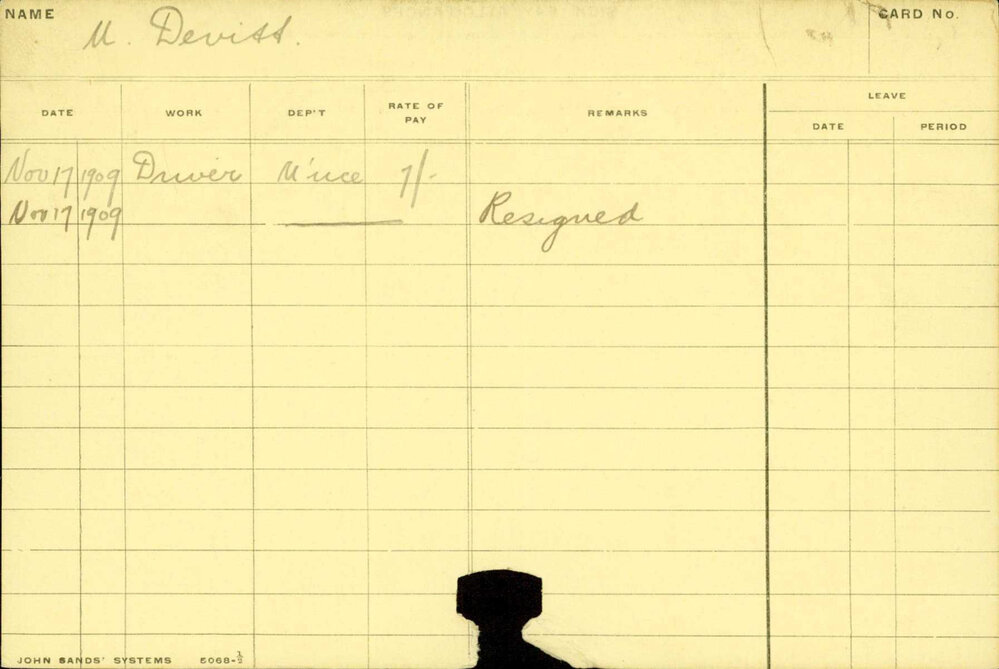 NAME M. Devitt. CARD No.
LEAVE
DATE WORK DEP'T RATE OF PAY REMARKS DATE PERIOD
Nov 17 1909 Driver M'nce 7/-
Nov 17 1909 Resigned
JOHN SANDS' SYSTEMS 5068-½